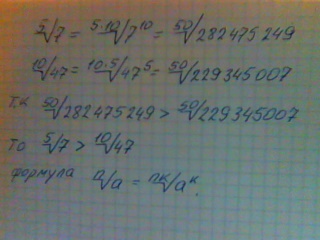 ⁵√7 = ⁵·¹⁰√7¹⁰ = ⁵⁰√282475249
¹⁰√47 = ¹⁰·⁵√47⁵ = ⁵⁰√229345007
Т.К ⁵⁰√282475249 > ⁵⁰√229345007
То ⁵√7 > ¹⁰√47
формула ⁿ√a = ⁿᵏ√aᵏ.